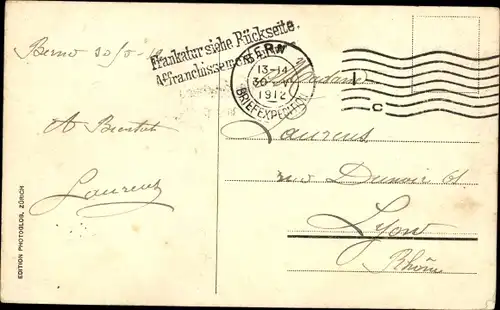 Frankatur siehe Rückseite.
Affranchissement au
BERN
13-14
30
1912
BRIEFEXPEDITION
C
Berne 30/5-12
A Bientot
Laurens
Madame
Laurens
Dunoir 61
Lyon
Rhône
EDITION PHOTOGLOB, ZÜRICH